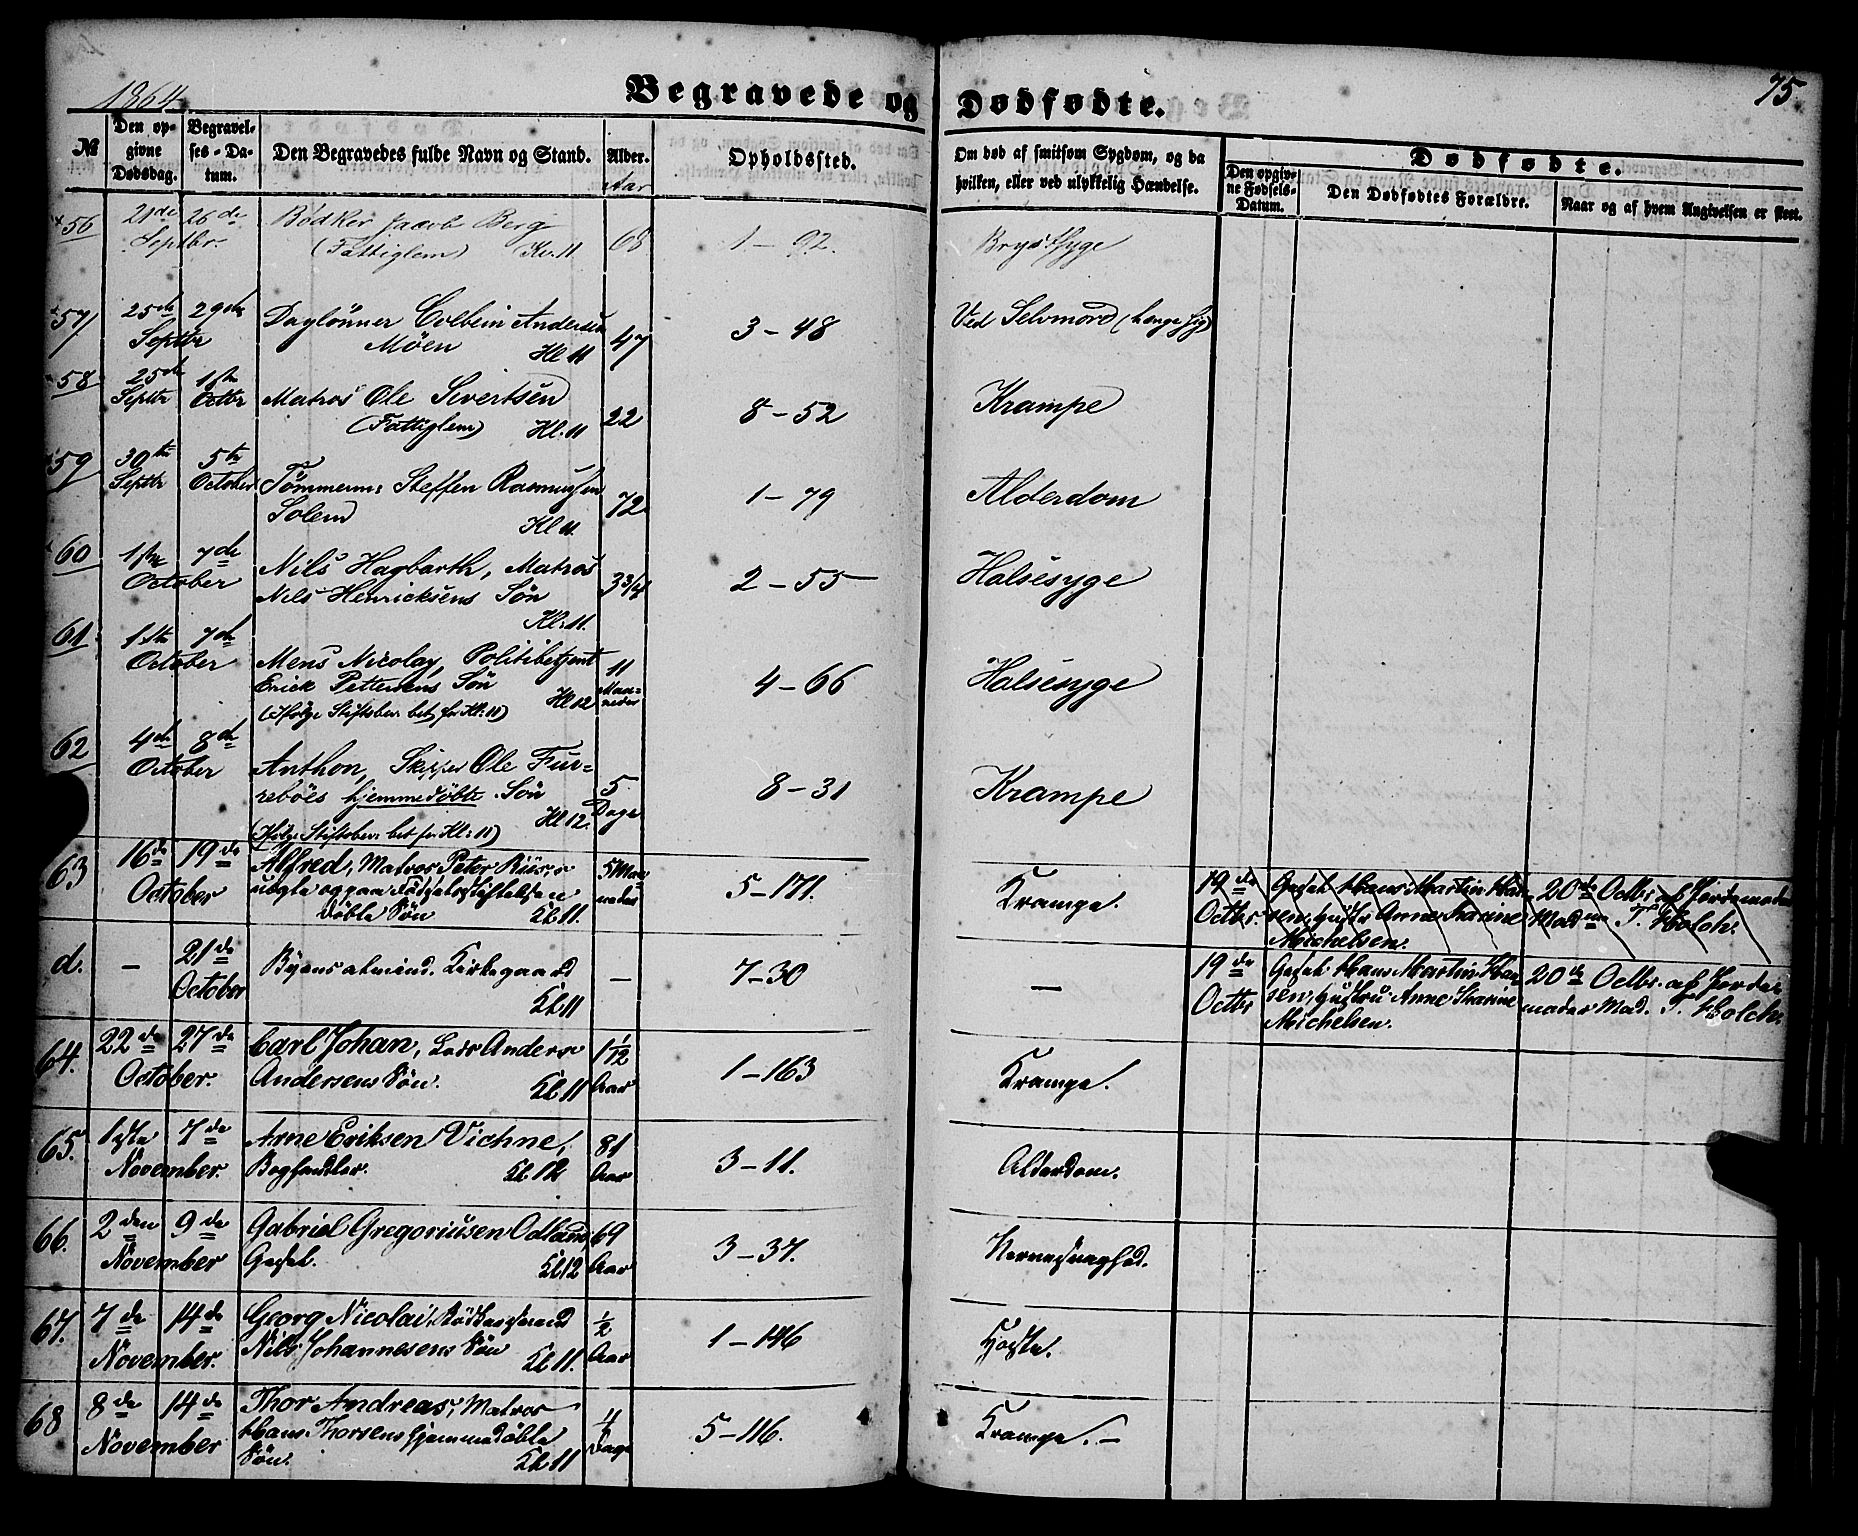 1864.
Begravede og Dødfødte.
75.
№
Den opgivne Dødsdag.
Begravelses-Datum.
Den Begravedes fulde Navn og Stand.
Alder.
Aar
Opholdssted.
Om død af smitsom Sygdom, og da hvilken, eller ved ulykkelig Hændelse.
Dødfødte.
Den opgivne Fødsels-Datum.
Den Dødfødtes Forældre.
Naar og af hvem Angivelsen er skeet.
56 21de 26de Bødker Jacob Berg 68 1-92. Brystsyge
Septbr. (Fattiglem) Kl. 11
57 25de 29de Daglönner Colbein Andersen 47 3-48 Ved Selvmord (hængt sig)
Septbr Möen Kl 11
58 25de 1ste Matros Ole Sivertsen 22 8-52 Krampe
Septbr Octbr (Fattiglem) Kl. 11
59 30te 5te Tömmerm: Steffen Rasmussen 72 1-79 Alderdom
Septbr October Solem Kl 11.
60 1ste 7de Nils Hagbarth, Matros 3 3/4 2-55 Halsesyge
October Nils Henricksens Sön
Kl: 11.
61 1ste 7de Mens Nicolay, Politibetjent 11 Maaneder 4-66 Halsesyge
October Erick Pettersens Sön Kl 12
(Ifölge Stiftsbev: bet for Kl: 11)
62 4de 8de Anthon, Skipper Ole Fur= 5 Dage 8-31 Krampe
October reböes hjemmedöbte Sön
Kl 12.
(Ifölge Stiftsbev: bet for Kl: 11)
63 16de 19de Alfred, Matros Peter Riis's 5 Maaneder 5-171. Krampe.
October uægte og paa Fødselsstiftelsen
döbte Sön Kl. 11.
19de Octbr. Gesel Hans Martin Hansen, Hustr. Anne Karine Michelsen. 20de Octbr. af Jordemoder Madme T. Holch.
d. - 21de Byens almind. Kirkegaard - 7-30 -
October Kl. 11
19de Octbr Gesel Hans Martin Hansen, Hustru Anne Karine Michelsen. 20de Octbr. af Jordemoder Mad. T. Holch.
64. 22de 27de Carl Johan, Lods Anders 1 1/12 Aar 1-163 Krampe.
October. Andersens Sön. Kl. 11
65. 1ste 7de Arne Eriksen Vichne, 81 Aar 3-11. Alderdom.
November. Boghandler. Kl. 12
66. 2den 9de Gabriel Gregoriusen Odland, 69 Aar 3-37. Nervesvaghed.
November Gesel. Kl 12
67. 7de 14de Georg Nicolai, 1/2 Aar 1-146 Hoste.
November. Nils Johannesens Sön Kl. 11.
68 8de 14de Thor Andreas, Matros 11 Dage 5-116. Krampe.-
November Hans Thorsens hjemmedöbte
Sön. Kl. 11